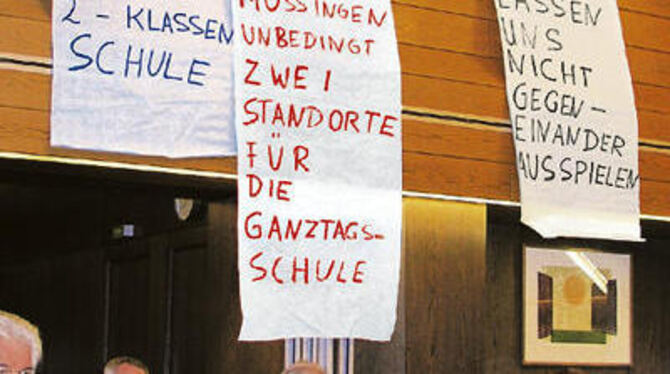 2 - KLASSEN
SCHULE
MÖSSINGEN
UNBEDINGT
ZWEI
STANDORTE
FÜR
DIE
GANZTAGS-
SCHULE
LASSEN
UNS
NICHT
GEGEN-
EINANDER
AUSSPIELEN